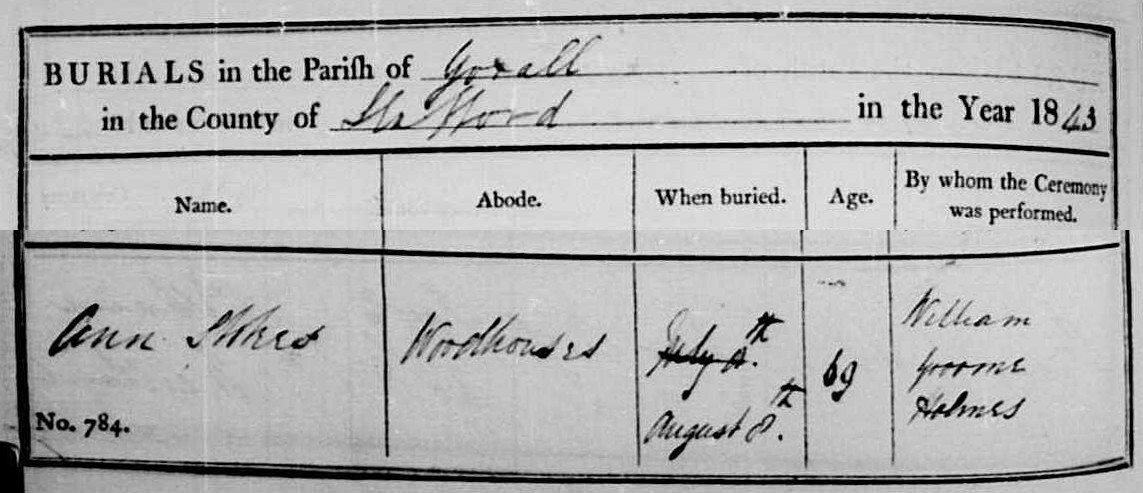 BURIALS in the Parish of Yoxall
in the County of Stafford in the Year 1843
Name. Abode. When buried. Age. By whom the Ceremony was performed.
Ann Stokes Woodhouses July 8.th 69 William
August 8.th Groome
No. 784. Holmes